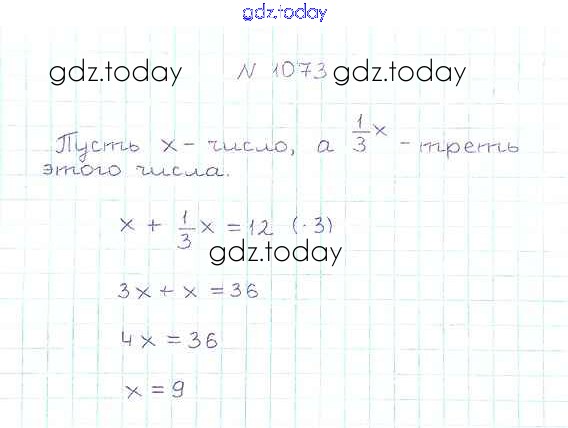 gdz.today
gdz.today N 1073 gdz.today
Пусть x - число, а 1/3 x - треть
этого числа.
x + 1/3 x = 12 (· 3)
gdz.today
3x + x = 36
4x = 36
x = 9